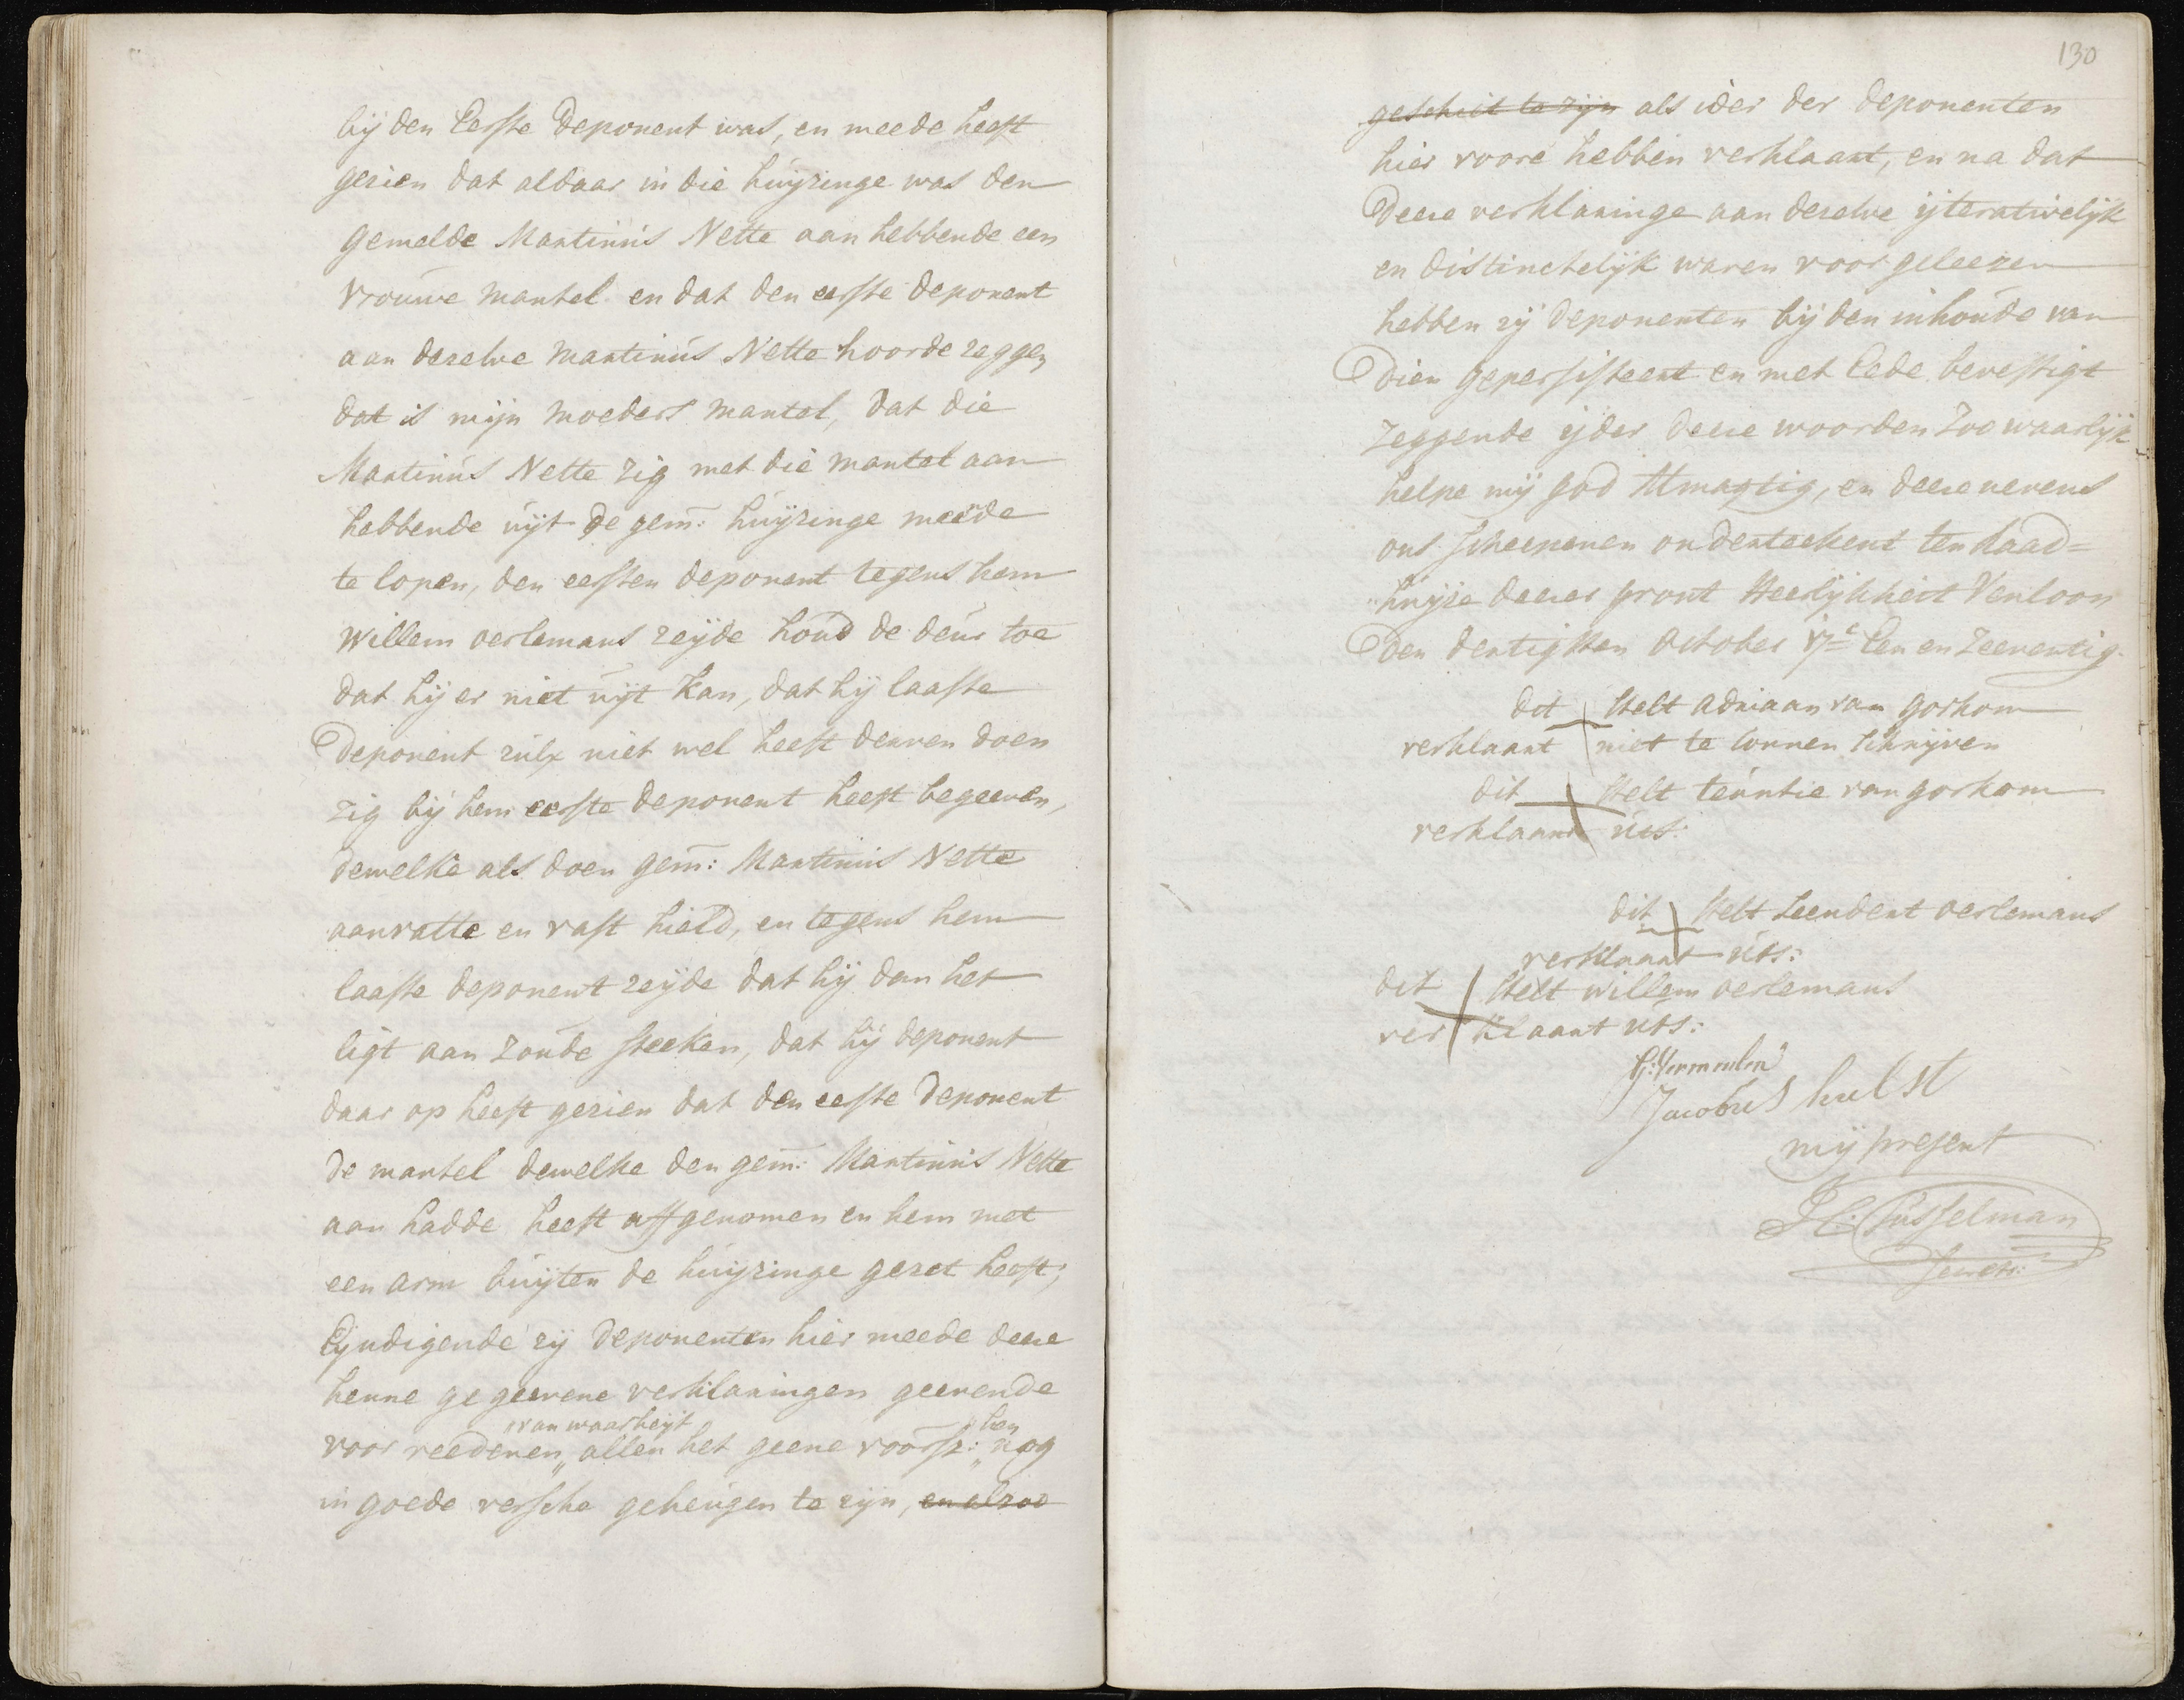 bij den Eerste Deponent was, en meede heeft
gezien dat aldaar in die huijzinge was den
gemelde Martinus Nette aan hebbende een
vrouwe mantel en dat den eerste deponent
aan dezelve Martinus Nette hoorde zeggen
dat is mijn moeders mantel, dat die
Martinus Nette zig met die mantel aan
hebbende uijt de gem: huijzinge meende
te lopen, den eersten deponent tegens hem
Willem oerlemans zeijde houd de deur toe
dat hij er niet uijt kan, dat hij laaste
Deponent zulx niet wel heeft derven doen
zig bij hem eerste deponent heeft begeeven,
dewelke als doen gem: Martinus Nette
aanvatte en vast hield, en tegens hem
laaste deponent zeijde dat hij dan het
ligt aan zoude steeken, dat hij deponent
daar op heeft gezien dat den eerste Deponent
de mantel dewelke den gem: Martinus Nette
aan hadde heeft aff genomen en hem met
een arm buijten de huijzinge gezet heeft;
Eijndigende zij Deponenten hier meede deese
henne gegeevene verklaringen geevende
van waarheijt hen
voor reedenen„ allen het geene voorsz: „ nog
in goede versche geheugen te zijn, en alzoo
130
geschiet te zijn als ider der deponenten
hier voore hebben verklaart, en na dat
Deese verklaringe aan dezelve ijterativelijk
en distinctelijk waren voor geleezen
hebben zij deponenten bij den inhoude van
Dien gepersisteert en met Eede bevestigt
zeggende ijder deese woorden Zoo waarlijk
helpe mij god Almagtig, en deese nevens
ons Scheepenen onderteekent ten Raad=
huijze deeser gront Heerlijkheit Venloon
Den dertigsten October 17c Een en Zeeventig.
dit stelt adriaan van gorkom
verklaart niet te konnen schrijven
dit stelt teuntie van gorkom
verklaart uts:
dit stelt Leendert oerlemans
verklaart uts:
dit stelt willem oerlemans
verklaart uts:
Jacobus hulst
mij present
Secrets: